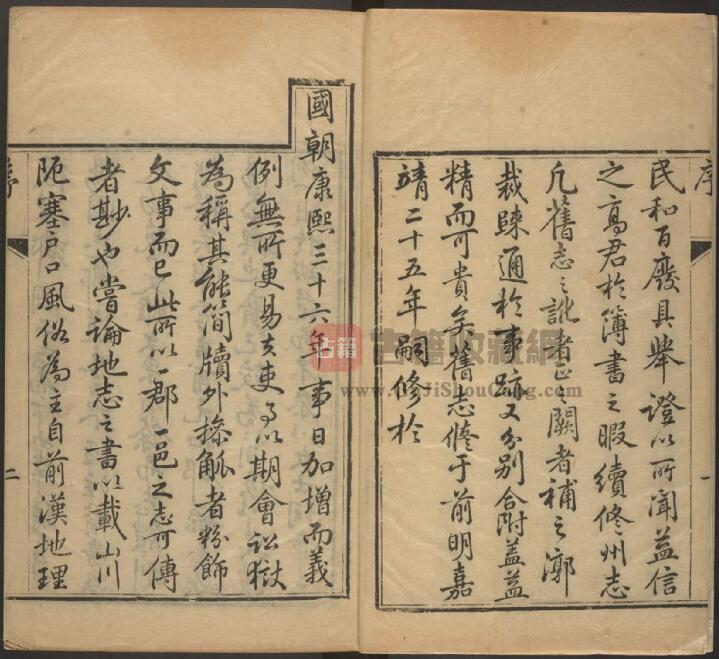 序
民和百廢具舉證以所聞益信
之高君於簿書之暇續修州志
凡舊志之訛者正之闕者補之郭
裁疎通於事跡又分別合附蓋益
精而可貴矣舊志修于前明嘉
靖二十五年嗣修於
一
國朝康熙三十六年事日加增而義
例無所更易夫吏多以期會訟獄
為稱其能簡牘外摻觚者粉飾
文事而已此所以一郡一邑之志可傳
者尠也嘗論地志之書以載山川
阨塞戶口風俗為主自前漢地理
序
二
古籍
古籍收藏網
GuJiShouCang.com